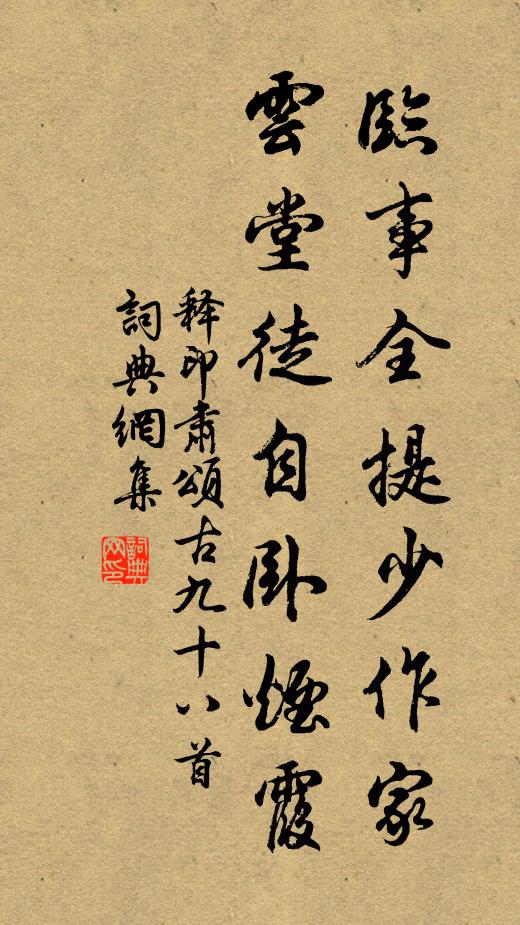 臨事全提少作家
雲堂徒自臥煙霞
释印肅頌古九十八首
詞典網集
詞典网印